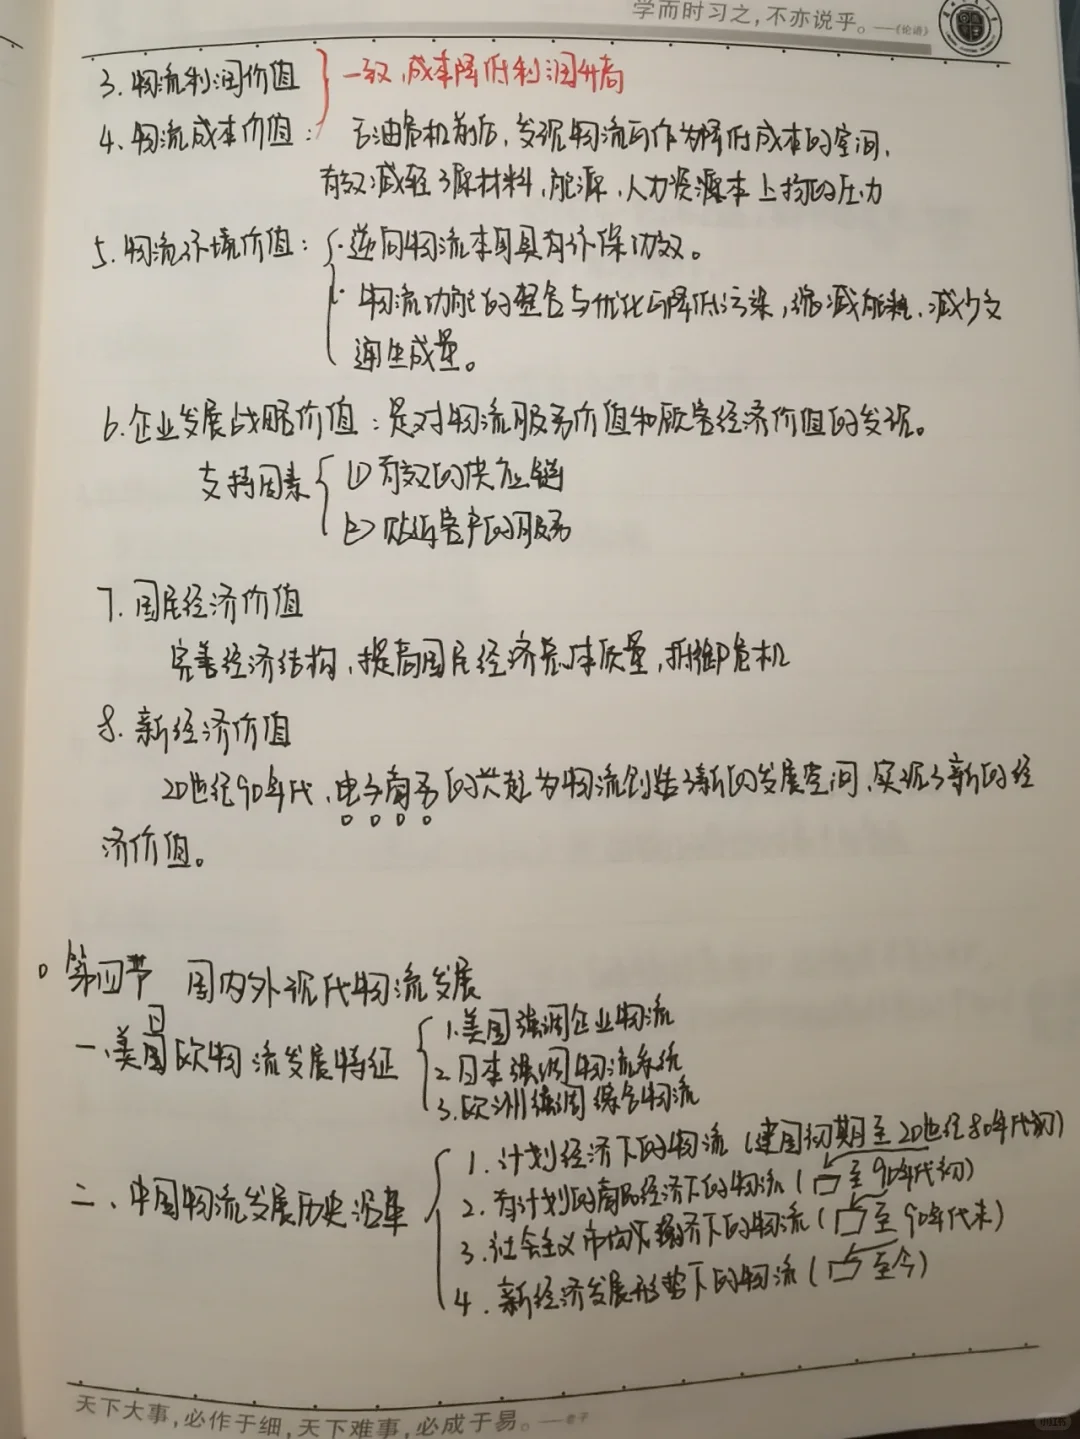 学而时习之,不亦说乎。——《论语》
3. 物流利润价值 } 一致,成本降低利润升高
4、物流成本价值: 石油危机前后,发现物流可作为降低成本的空间,
有效减轻了原材料,能源,人力资源本上扬的压力
5. 物流环境价值: { · 逆向物流本身具有环保功效。
· 物流功能的整合与优化可降低污染,缩减能耗,减少交
通生成量。
6. 企业发展战略价值:是对物流服务价值和顾客经济价值的发现。
支持因素 { ① 有效的供应链
② 贴近客户的服务
7. 国民经济价值
完善经济结构,提高国民经济总体质量,抵御危机
8. 新经济价值
20世纪90年代,电子商务的兴起为物流创造了新的发展空间,实现了新的经
济价值。
第四节 国内外现代物流发展
一、美国日欧物流发展特征 { 1. 美国强调企业物流
2. 日本强调物流系统
3. 欧洲强调综合物流
二、中国物流发展历史沿革 { 1. 计划经济下的物流(建国初期至20世纪80年代初)
2. 有计划的商品经济下的物流(至90年代初)
3. 社会主义市场经济下的物流(至90年代末)
4. 新经济发展形势下的物流(至今)
天下大事,必作于细,天下难事,必成于易。——老子